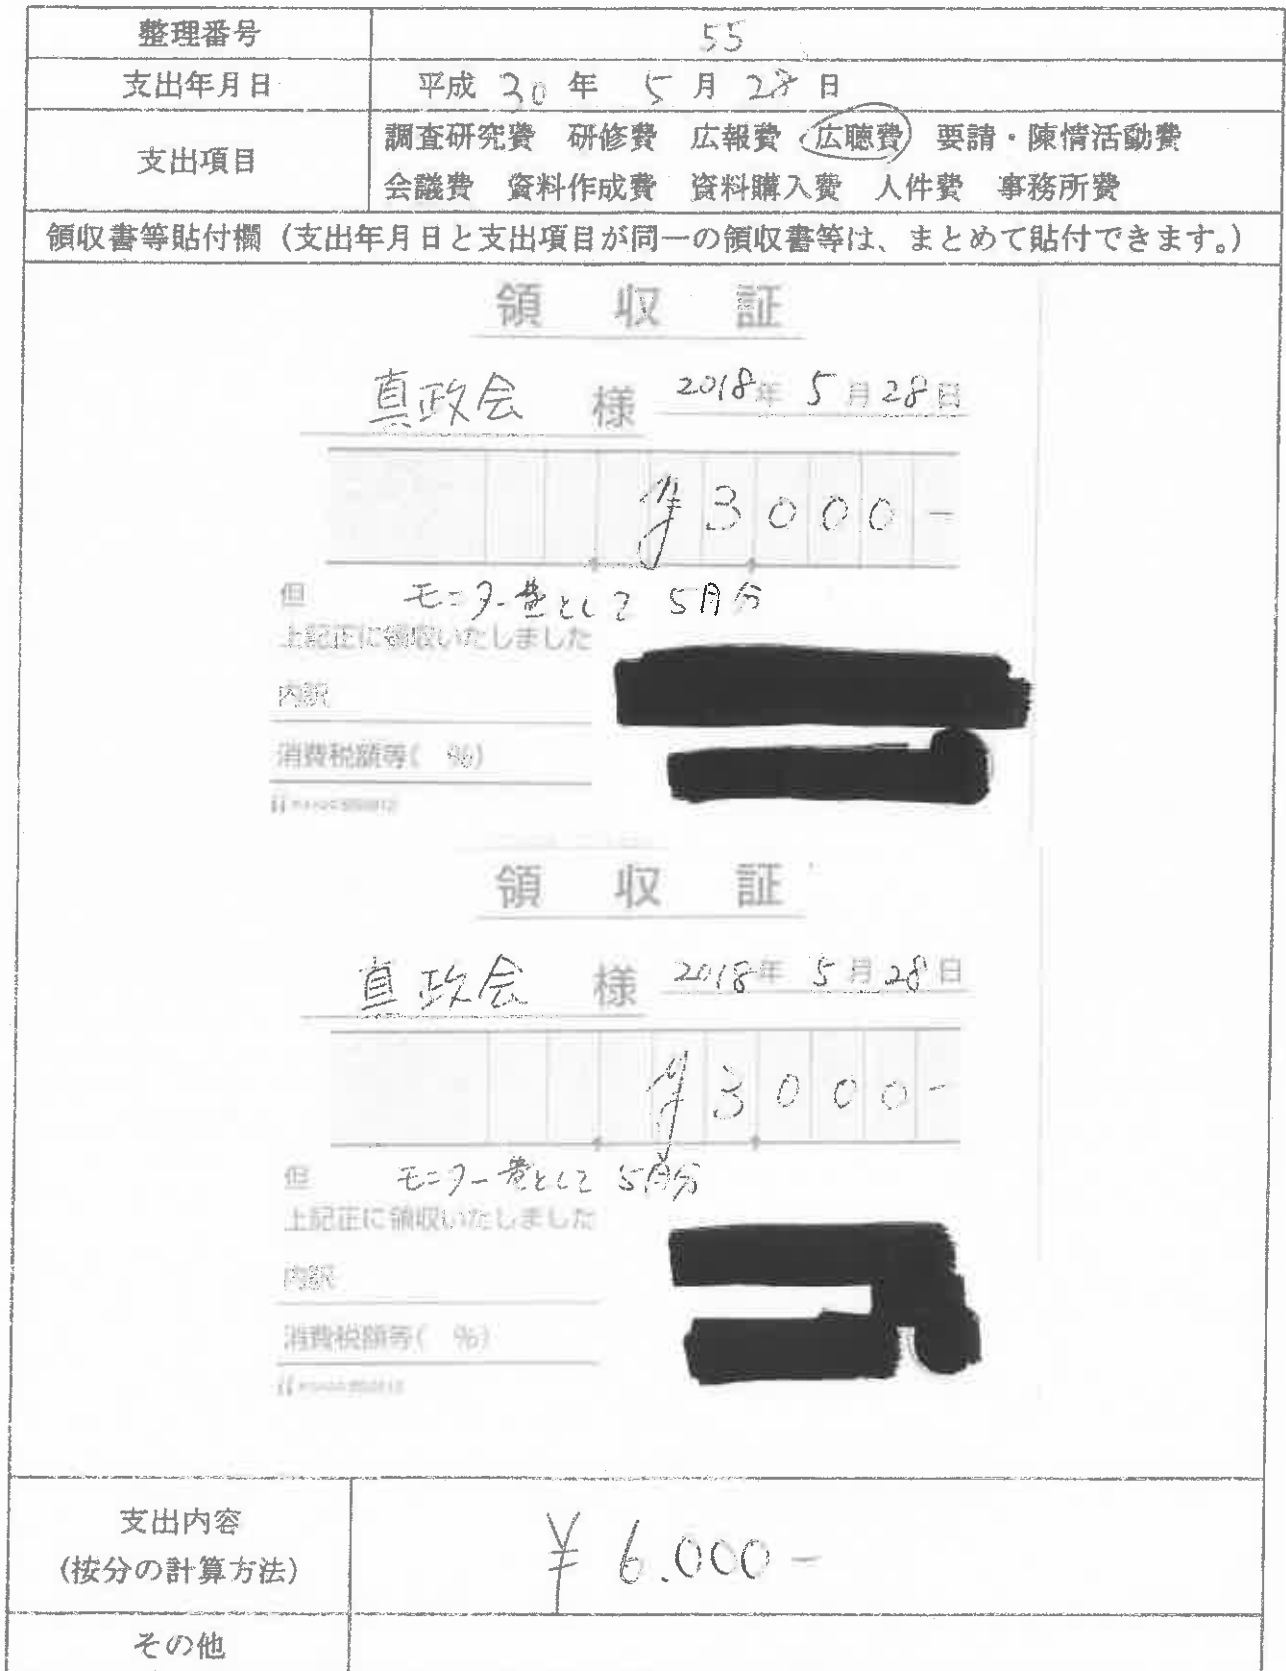 整理番号 55
支出年月日 平成 30 年 5 月 28 日
支出項目
調査研究費 研修費 広報費 広聴費 要請・陳情活動費
会議費 資料作成費 資料購入費 人件費 事務所費
領収書等貼付欄（支出年月日と支出項目が同一の領収書等は、まとめて貼付できます。）
領 収 証
真政会 様 2018年 5月28日
¥3000-
但 モニター費として 5月分
上記正に領収いたしました
内訳
消費税額等( %)
領 収 証
真政会 様 2018年 5月28日
¥3000-
但 モニター費として 5月分
上記正に領収いたしました
内訳
消費税額等( %)
支出内容
(按分の計算方法)
¥6.000-
その他